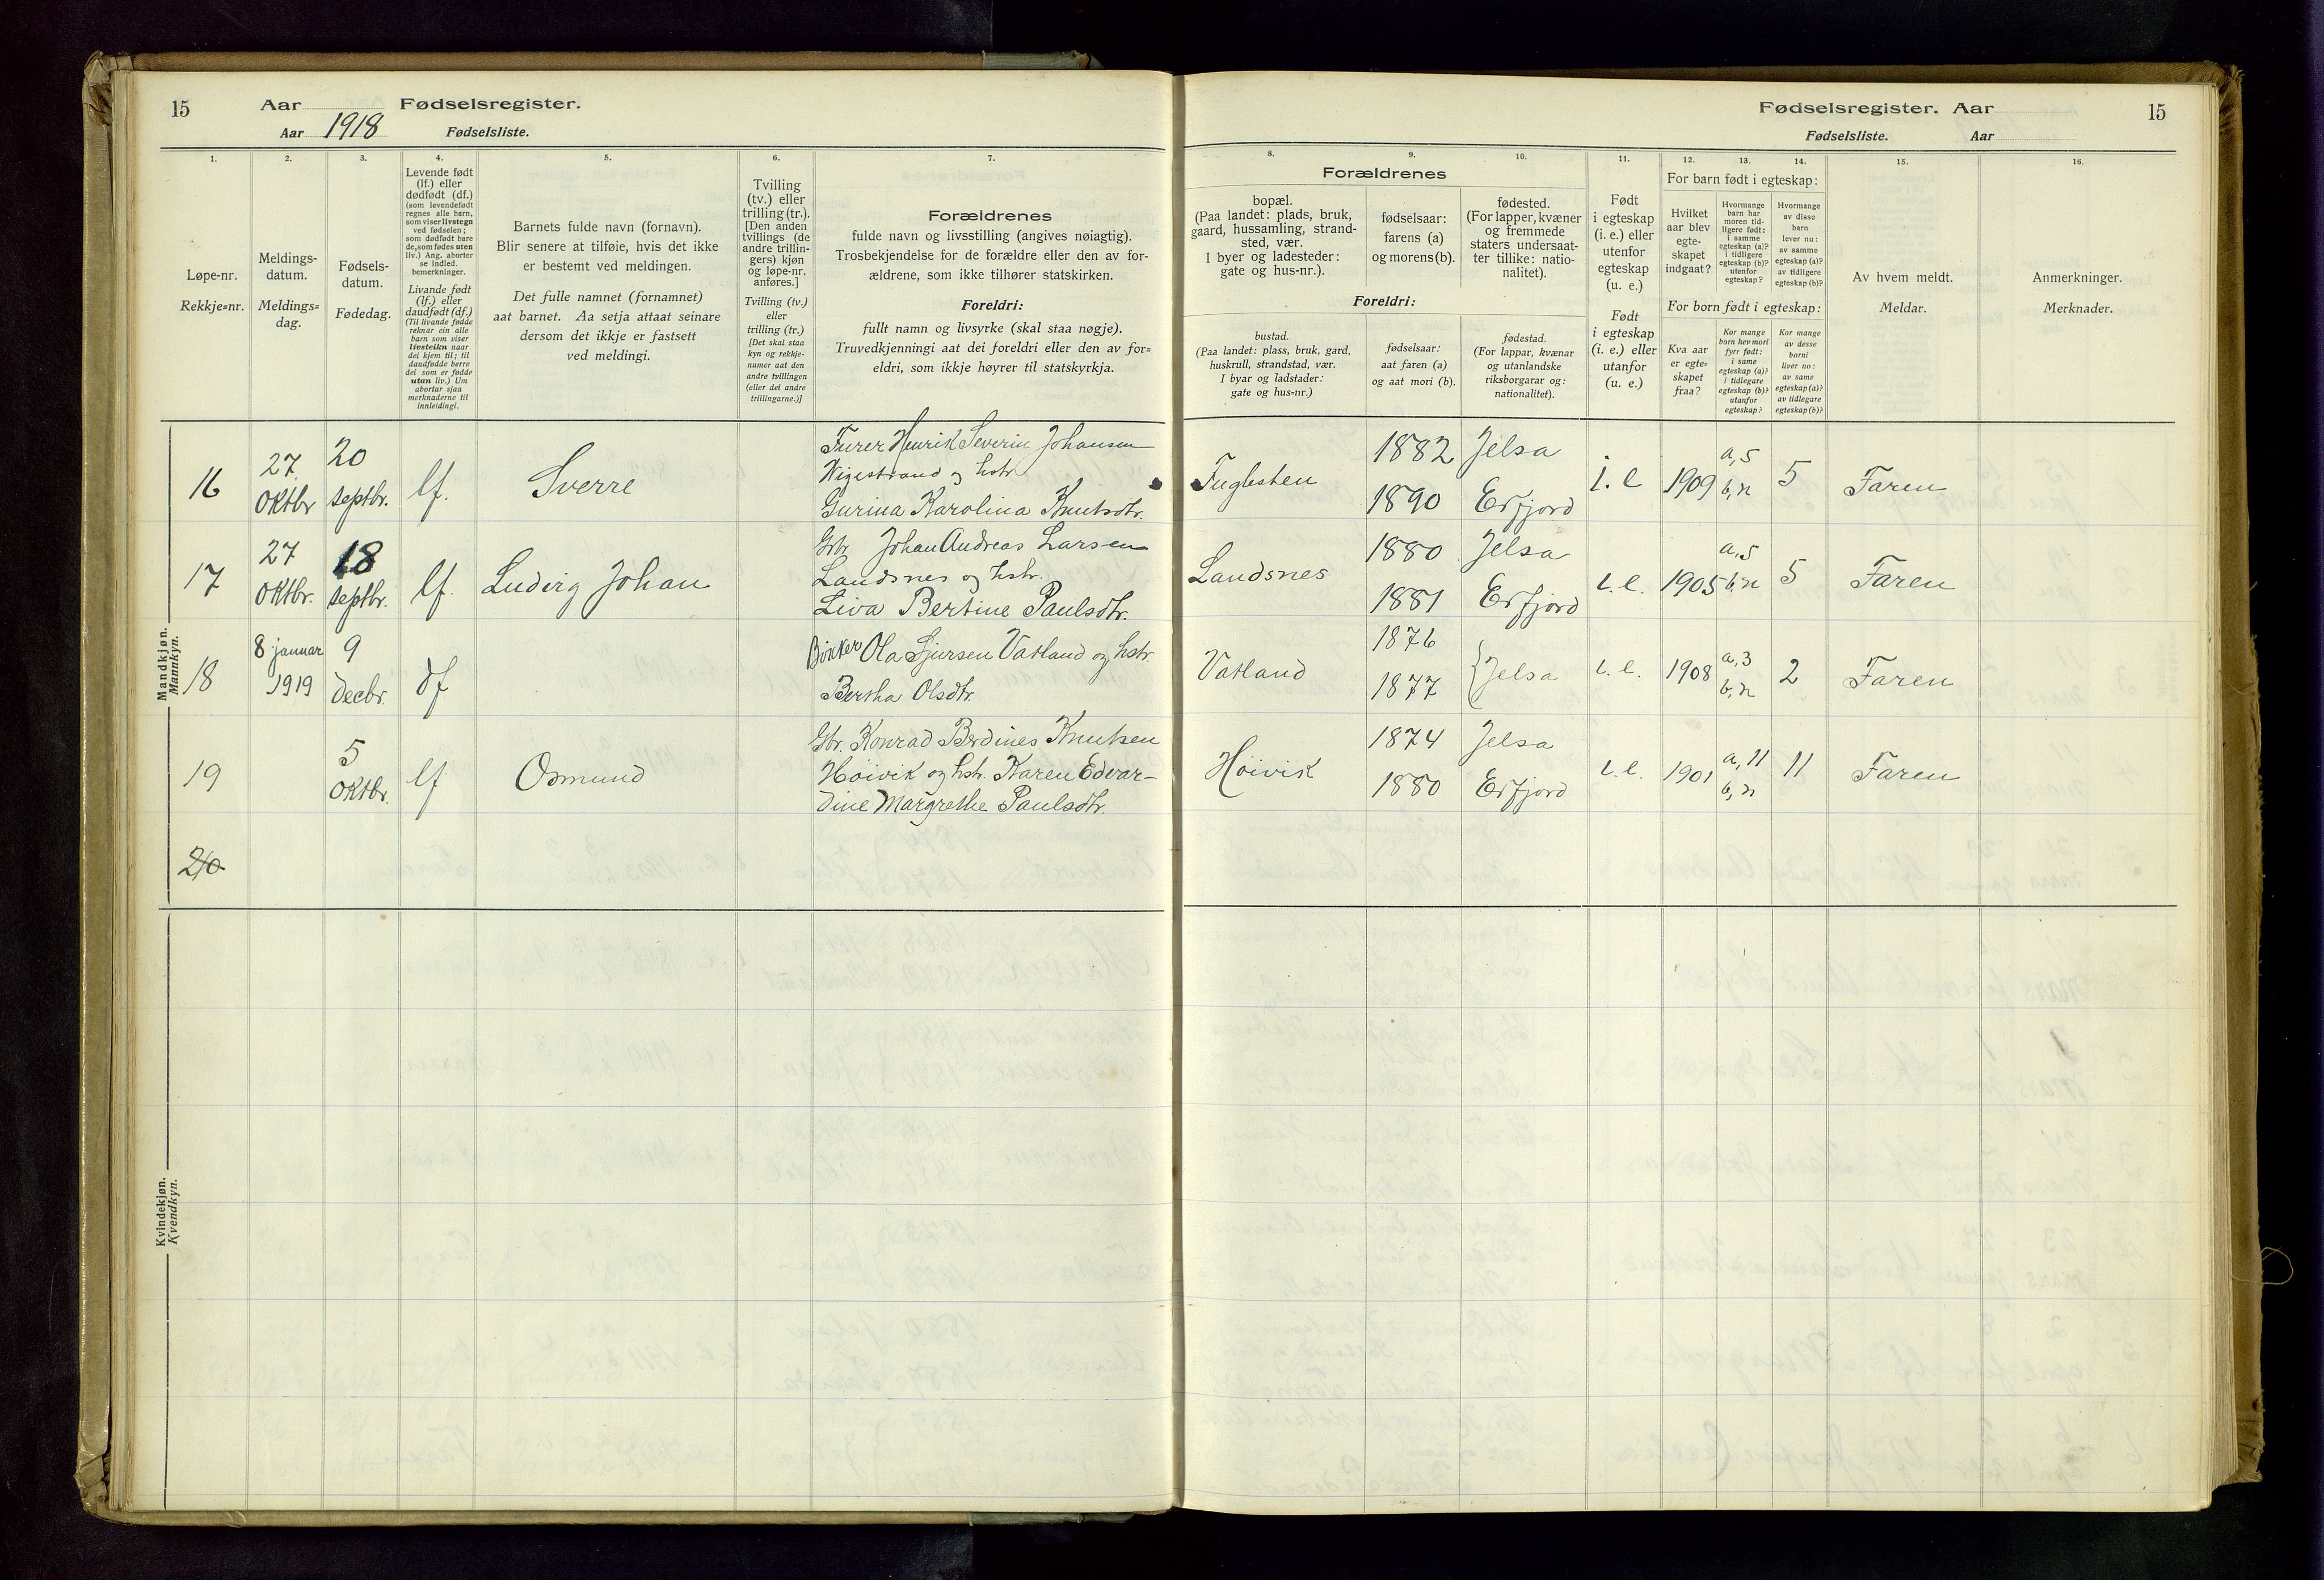 15 Aar Fødselsregister.
Aar 1918 Fødselsliste.
1.
Løpe-nr.
Rekkje=nr.
2.
Meldings-
datum.
Meldings=
dag.
3.
Fødsels-
datum.
Fødedag.
4.
Levende født
(lf.) eller
dødfødt (df.)
(som levendefødt
regnes alle barn,
som viser livstegn
ved fødselen;
som dødfødt bare
de, som fødes uten
liv.) Ang. aborter
se indled.
bemerkninger.
Livande født
(lf.) eller
daudfødt (df.)
(Til livande fødde
reknar ein alle
barn som viser
livsteikn naar
dei kjem til; til
daudfødde berre
dei som er fødde
utan liv.) Um
abortar sjaa
merknaderne til
innleidingi.
5.
Barnets fulde navn (fornavn).
Blir senere at tilføie, hvis det ikke
er bestemt ved meldingen.
Det fulle namnet (fornamnet)
aat barnet. Aa setja attaat seinare
dersom det ikkje er fastsett
ved meldingi.
6.
Tvilling
(tv.) eller
trilling (tr.).
[Den anden
tvillings (de
andre trillin-
gers) kjøn
og løpe-nr.
anføres.]
Tvilling (tv.)
eller
trilling (tr.)
[Det skal staa
kyn og rekkje-
numer aat den
andre tvillingen
(eller dei andre
trillingarne.)]
7.
Forældrenes
fulde navn og livsstilling (angives nøiagtig).
Trosbekjendelse for de forældre eller den av for-
ældrene, som ikke tilhører statskirken.
Foreldri:
fullt namn og livsyrke (skal staa nøgje).
Truvedkjenningi aat dei foreldri eller den av for=
eldri, som ikkje høyrer til statskyrkja.
Mandkjøn.
Mannkyn.
16 27 Oktbr 20 septbr. lf. Sverre
Furer Henrik Severin Johansen
Vigestrand og hstr.
Gurina Karolina Knutsdtr.
17 27 Oktbr. 18 septbr. lf. Ludvig Johan
Gbr. Johan Andreas Larsen
Landsnes og hstr.
Liva Bertine Paulsdtr.
18 8 januar 1919 9 decbr. df
Bøkker Ola Sjursen Vatland og hstr.
Bertha Olsdtr.
19 5 Oktbr. lf Osmund
Gbr. Konrad Berdines Knutsen
Høivik og hstr. Karen Edvar-
dine Margrethe Paulsdtr.
20
Kvindekjøn.
Kvendkyn.
Fødselsregister. Aar 15
Fødselsliste. Aar
8.
Forældrenes
bopæl.
(Paa landet: plads, bruk,
gaard, hussamling, strand-
sted, vær.
I byer og ladesteder:
gate og hus-nr.).
9.
fødselsaar:
farens (a)
og morens (b).
10.
fødested.
(For lapper, kvæner
og fremmede
staters undersaat-
ter tillike: natio-
nalitet).
Foreldri:
bustad.
(Paa landet: plass, bruk, gard,
huskrull, strandstad, vær.
I byar og ladstader:
gate og hus=nr.)
fødselsaar:
aat faren (a)
og aat mori (b).
fødestad.
(For lappar, kvænar
og utanlandske
riksborgarar og:
nationalitet).
11.
Født
i egteskap
(i. e.) eller
utenfor
egteskap
(u. e.)
Født
i egteskap
(i. e.) eller
utanfor
(u. e.)
12. 13. 14.
For barn født i egteskap:
Hvilket
aar blev
egte-
skapet
indgaat?
Hvormange
barn har
moren tid-
ligere født:
i samme
egteskap (a)?
i tidligere
egteskap (b)?
utenfor
egteskap?
Hvormange
av disse
barn
lever nu:
av samme
egteskap (a)?
av tidligere
egteskap (b)?
For born født i egteskap:
Kva aar
er egte-
skapet
fraa?
Kor mange
born hev mori
fyrr født:
i same
egteskap (a)?
i tidlegare
egteskap (b)?
utanfor
egteskap?
Kor mange
av desse
borni
liver no:
av same
egteskap (a)?
av tidlegare
egteskap (b)?
15.
Av hvem meldt.
Meldar.
16.
Anmerkninger.
Merknader.
Fuglesten 1882 1890 Jelsa Erfjord i. e 1909 a, 5 b, n 5 Faren
Landsnes 1880 1881 Jelsa Erfjord i. e. 1905 a, 5 b, n 5 Faren
Vatland 1876 1877 Jelsa i. e. 1908 a, 3 b, n 2 Faren
Høivik 1874 1880 Jelsa Erfjord i. e. 1901 a, 11 b, n 11 Faren